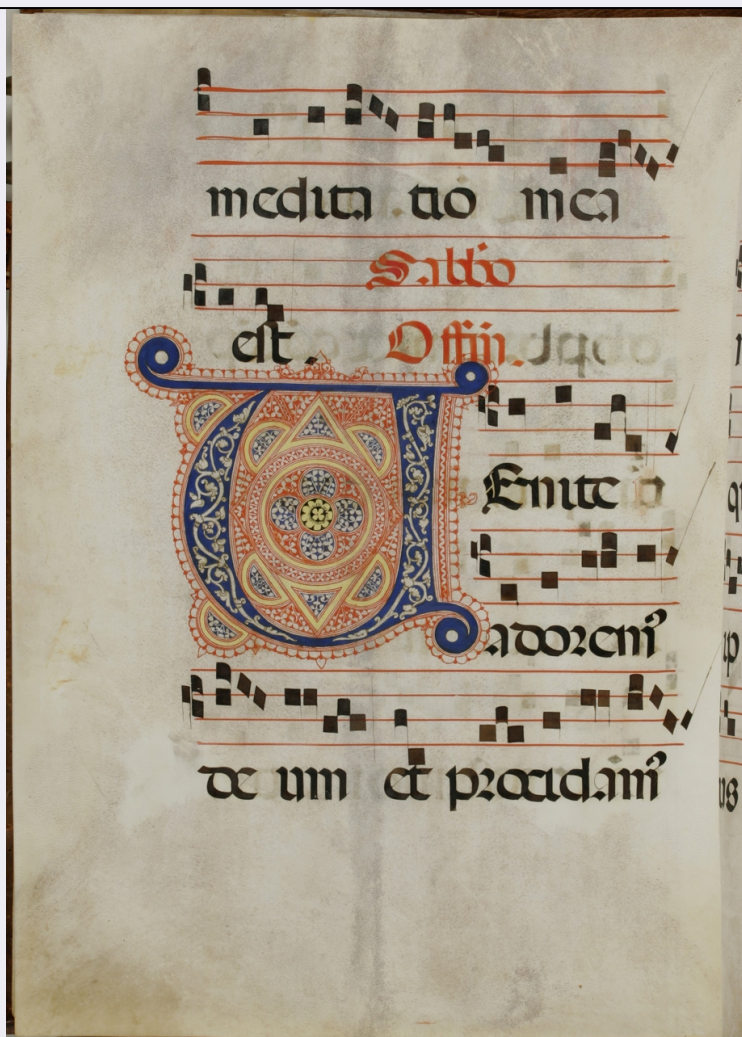 medita tio mea
Sabbo
est. Offiu.
VEnite
adorem᾽
de um et procidam᾽